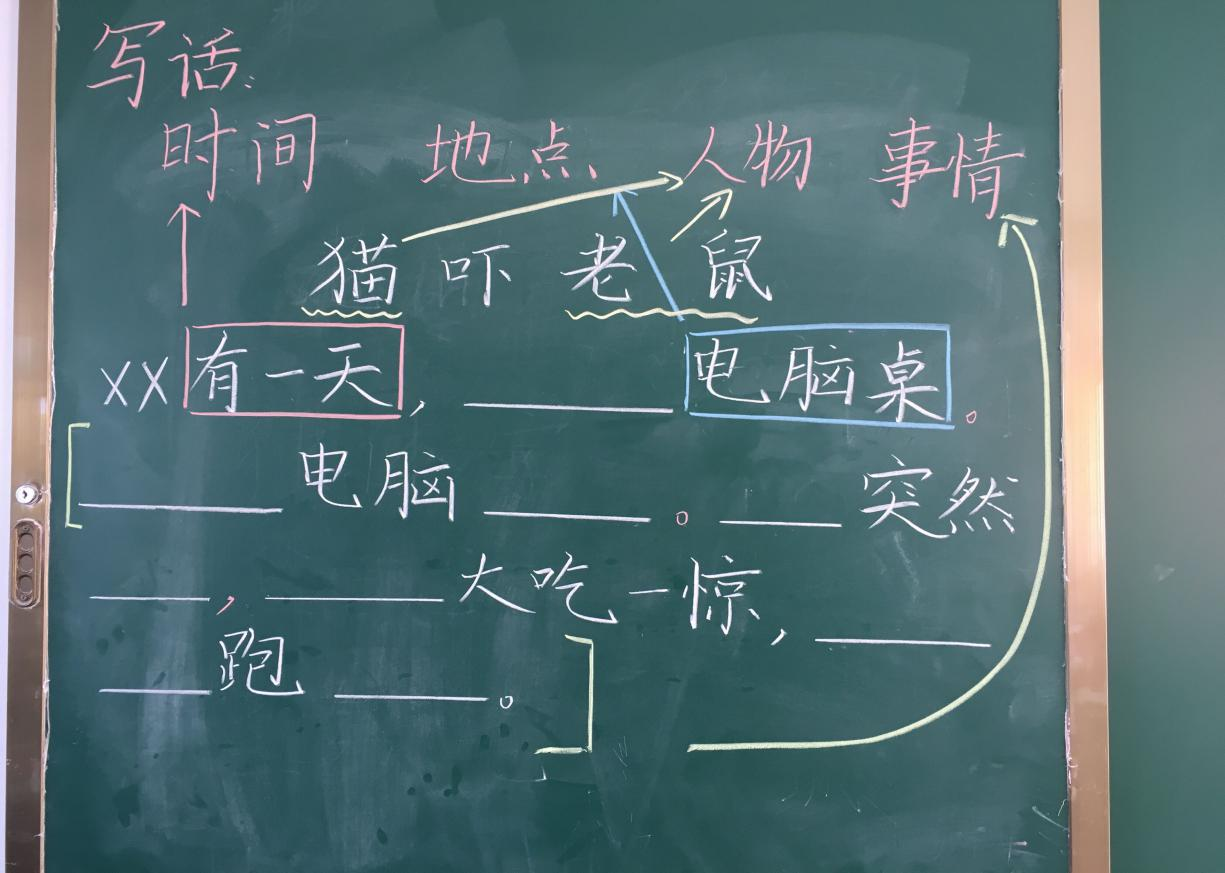 写话:
时间 地点、人物 事情
猫吓老鼠
XX有一天,______电脑桌。
______电脑______。____突然
____,______大吃一惊,______
____跑______。